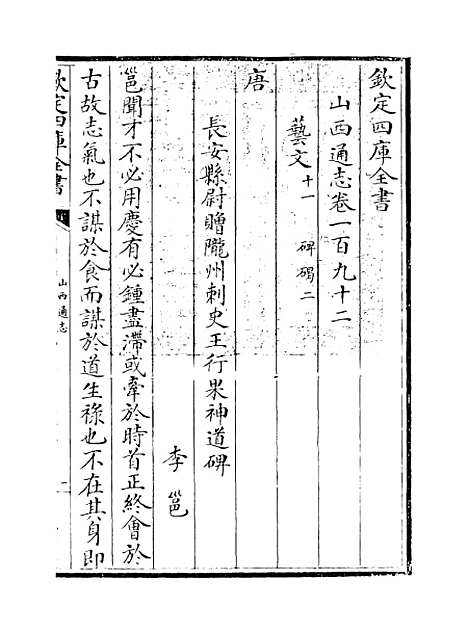 欽定四庫全書
山西通志卷一百九十二
藝文十一 碑碣二
唐
長安縣尉贈隴州刺史王行果神道碑
李邕
邕聞才不必用慶有必鍾盡滯或牽於時首正終會於
古故志氣也不謀於食而謀於道生祿也不在其身即
欽定四庫全書
山西通志